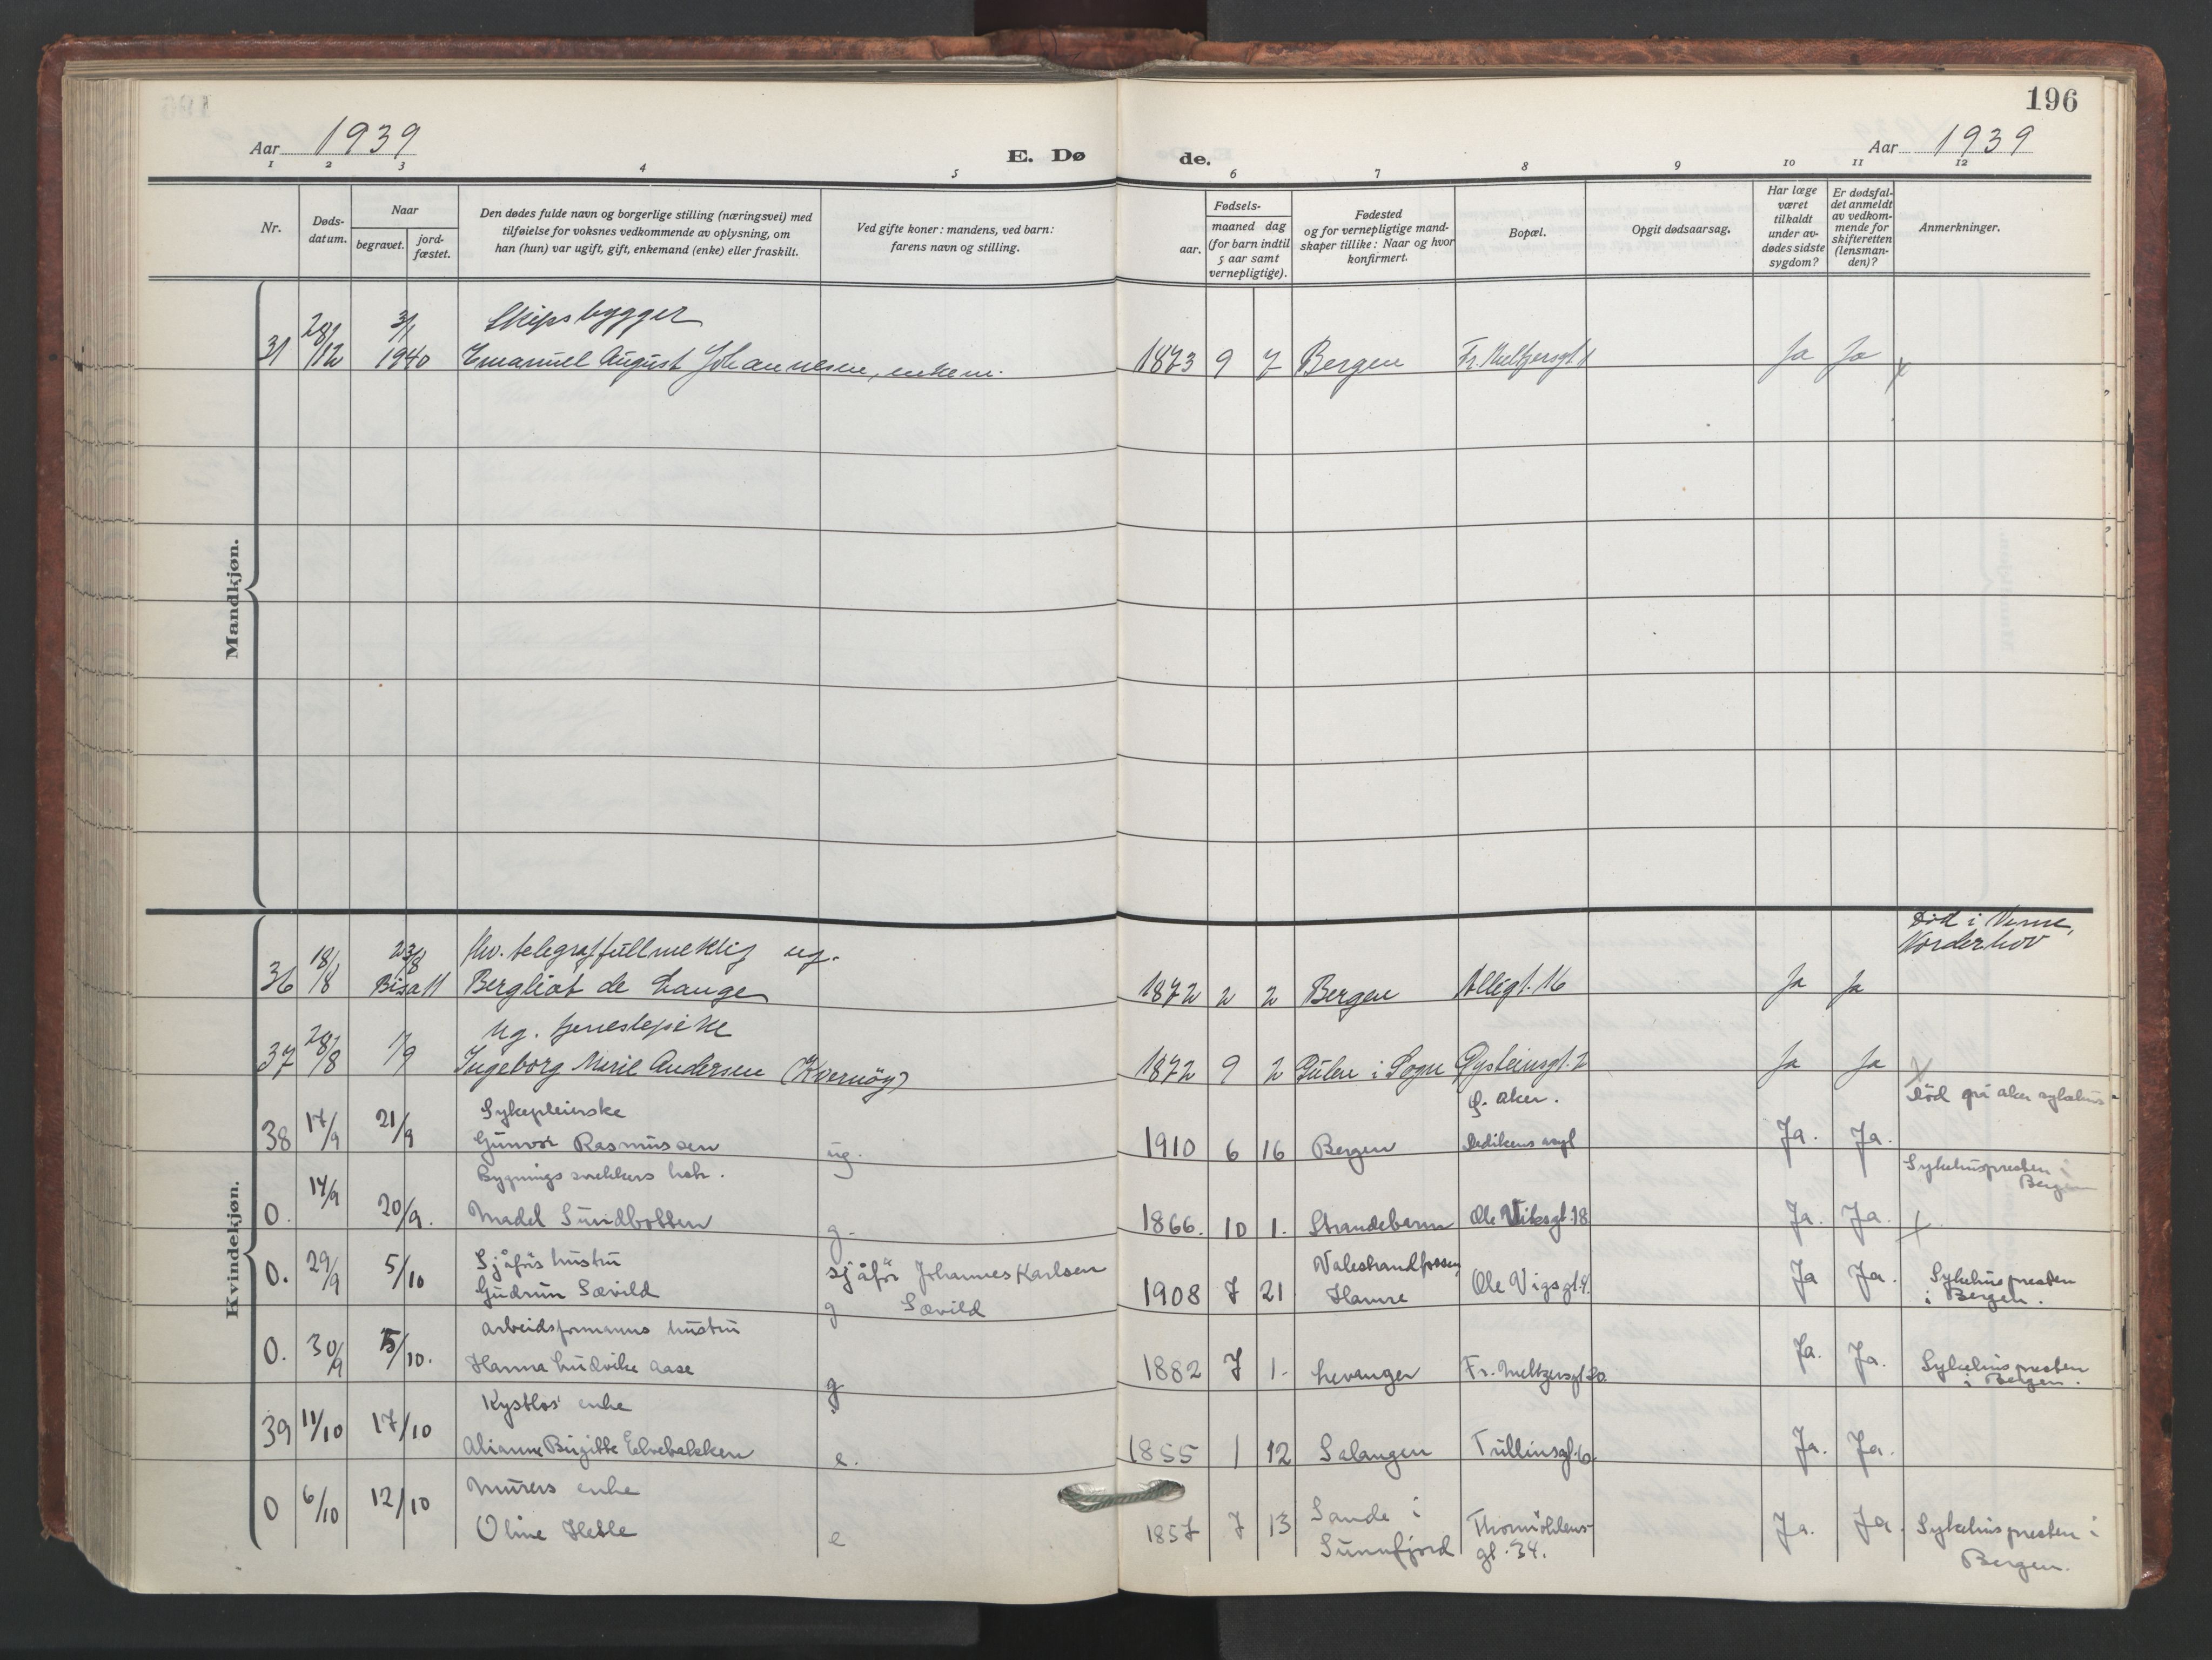 196
Aar 1939
E. Dø
de.
Aar 1939
1 2 3 4 5 6 7 8 9 10 11 12
Nr.
Døds-
datum.
Naar
begravet.
jord-
fæstet.
Den dødes fulde navn og borgerlige stilling (næringsvei) med
tilføielse for voksnes vedkommende av oplysning, om
han (hun) var ugift, gift, enkemand (enke) eller fraskilt.
Ved gifte koner: mandens, ved barn:
farens navn og stilling.
Fødsels-
aar.
maaned dag
(for barn indtil
5 aar samt
vernepligtige).
Fødested
og for vernepligtige mand-
skaper tillike: Naar og hvor
konfirmert.
Bopæl.
Opgit dødsaarsag.
Har læge
været
tilkaldt
under av-
dødes sidste
sygdom?
Er dødsfal-
det anmeldt
av vedkom-
mende for
skifteretten
(lensman-
den)?
Anmerkninger.
Mandkjøn.
28/12 3/1 Skipsbygger
31 1940 Emanuel August Johannesen, enkem. 1873 9 7 Bergen Fr. Meltzersgt. Ja Ja x
Kvindekjøn.
Død i
Norderhov
18/8 23/8 telegraffullmektig ug.
36 Bisatt Bergliot de Lange 1872 2 2 Bergen Allégt. 16 Ja Ja
28/8 1/9 Ug. tjenestepike
37 Ingeborg Marie Andersen (Kvernöy) 1872 9 2 Gulen i Sogn Øysteinsgt. 2 Ja Ja x
17/9 21/9 Sykepleierske Ö. Aker. Död på Aker sykehus
38 Gunvor Rasmussen ug. 1910 6 16 Bergen Dedikens asyl Ja. Ja.
14/9 Bygnings snekkers hstr. Sykehuspresten i
Bergen
0. 20/9. Madel Sundbotten g. 1866. 10 1. Strandebarm Ole Viksgt. 18 Ja. Ja. x
29/9 5/10 Sjåförs hustru sjåför Johannes Karlsen Valestrandfossen
0. Gudrun Sævild g Sævild 1908 7 21 Hamre Ole Vigsgt. 9. Ja Ja. Sykehuspresten
i Bergen.
30/9 5/10. Arbeidsformanns hustru
0. Hanna Ludvike Aase g. 1882 7 1. Levanger Fr. Meltzersgt 20. Ja. Ja. Sykehuspresten
i Bergen.
11/10 17/10 Kystlos' enke
39 Alianna Birgitte Elvebakken e. 1855 1 12 Salangen Tullinsgt. 6. Ja. Ja.
6/10 12/10 Murers enke
0 Oline Hetle e 1857 7 13 Sande i
Sunnfjord Thormöhlens-
gt. 34. Ja. Ja. Sykehuspresten i
Bergen.